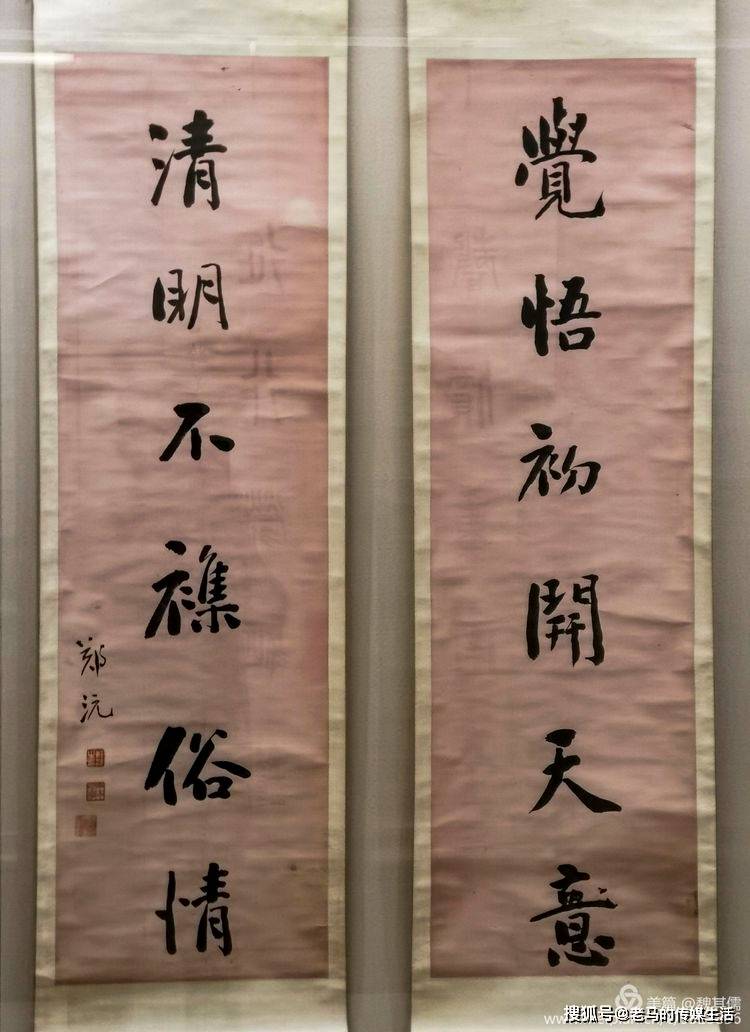 覺悟初開天意
清明不襍俗情
鄭沅
美篇 @魏其儒
搜狐号@老马的传媒生活